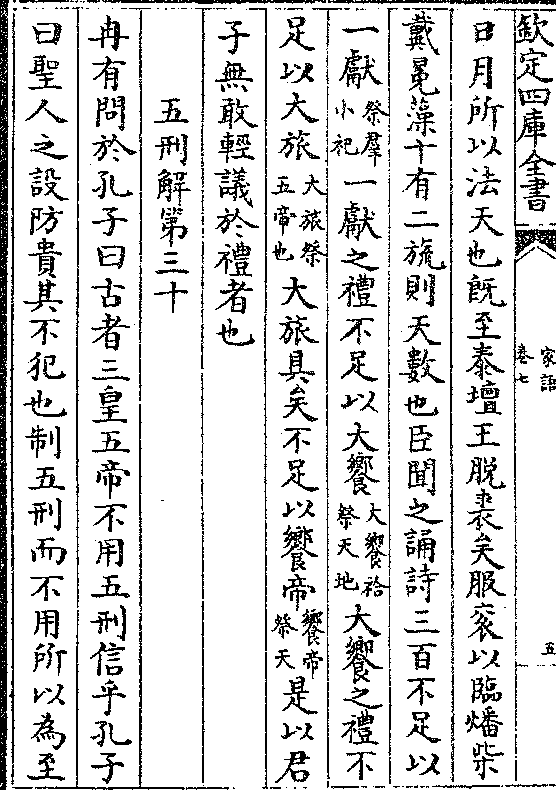 欽定四庫全書
家語
卷七
五
日月所以法天也既至泰壇王脱裘矣服衮以臨燔柴
戴冕藻十有二旒則天數也臣聞之誦詩三百不足以
一獻祭羣小祀一獻之禮不足以大饗大饗祫祭天地大饗之禮不
足以大旅大旅祭五帝也大旅具矣不足以饗帝饗帝祭天是以君
子無敢輕議於禮者也
五刑解第三十
冉有問於孔子曰古者三皇五帝不用五刑信乎孔子
曰聖人之設防貴其不犯也制五刑而不用所以為至